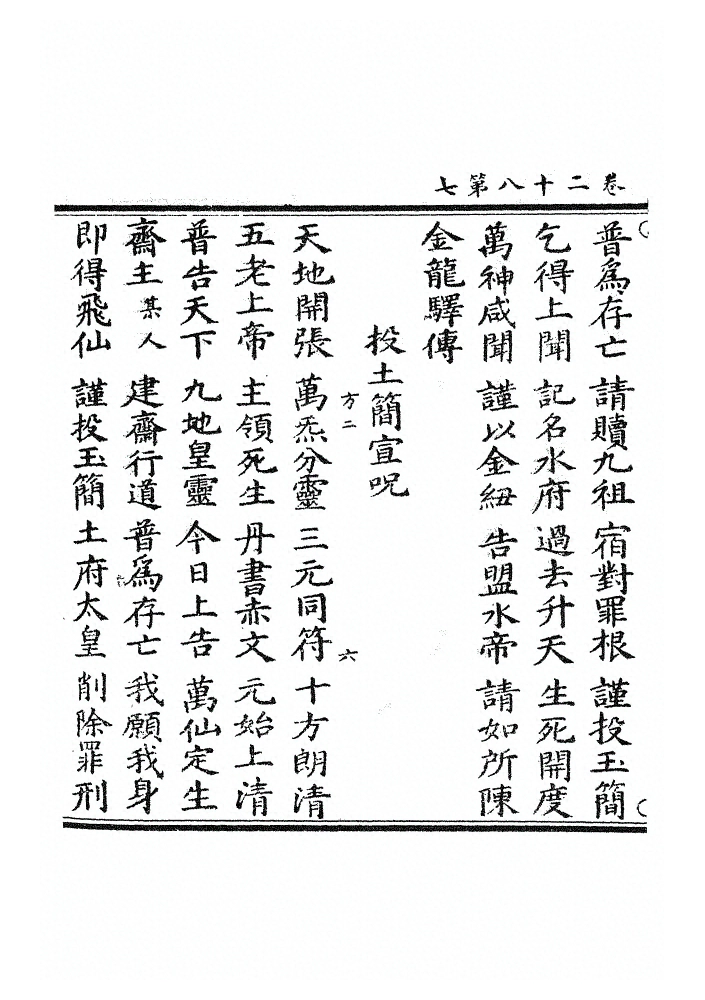 卷二十八第七
普爲存亡 請贖九祖 宿對罪根 謹投玉簡
乞得上聞 記名水府 過去升天 生死開度
萬神咸聞 謹以金紐 告盟水帝 請如所陳
金龍驛傳
投土簡宣呪
方二 六
天地開張 萬炁分靈 三元同符 十方朗清
五老上帝 主領死生 丹書赤文 元始上清
普告天下 九地皇靈 今日上告 萬仙定生
齋主某人 建齋行道 普爲存亡 我願我身
即得飛仙 謹投玉簡 土府太皇 削除罪刑